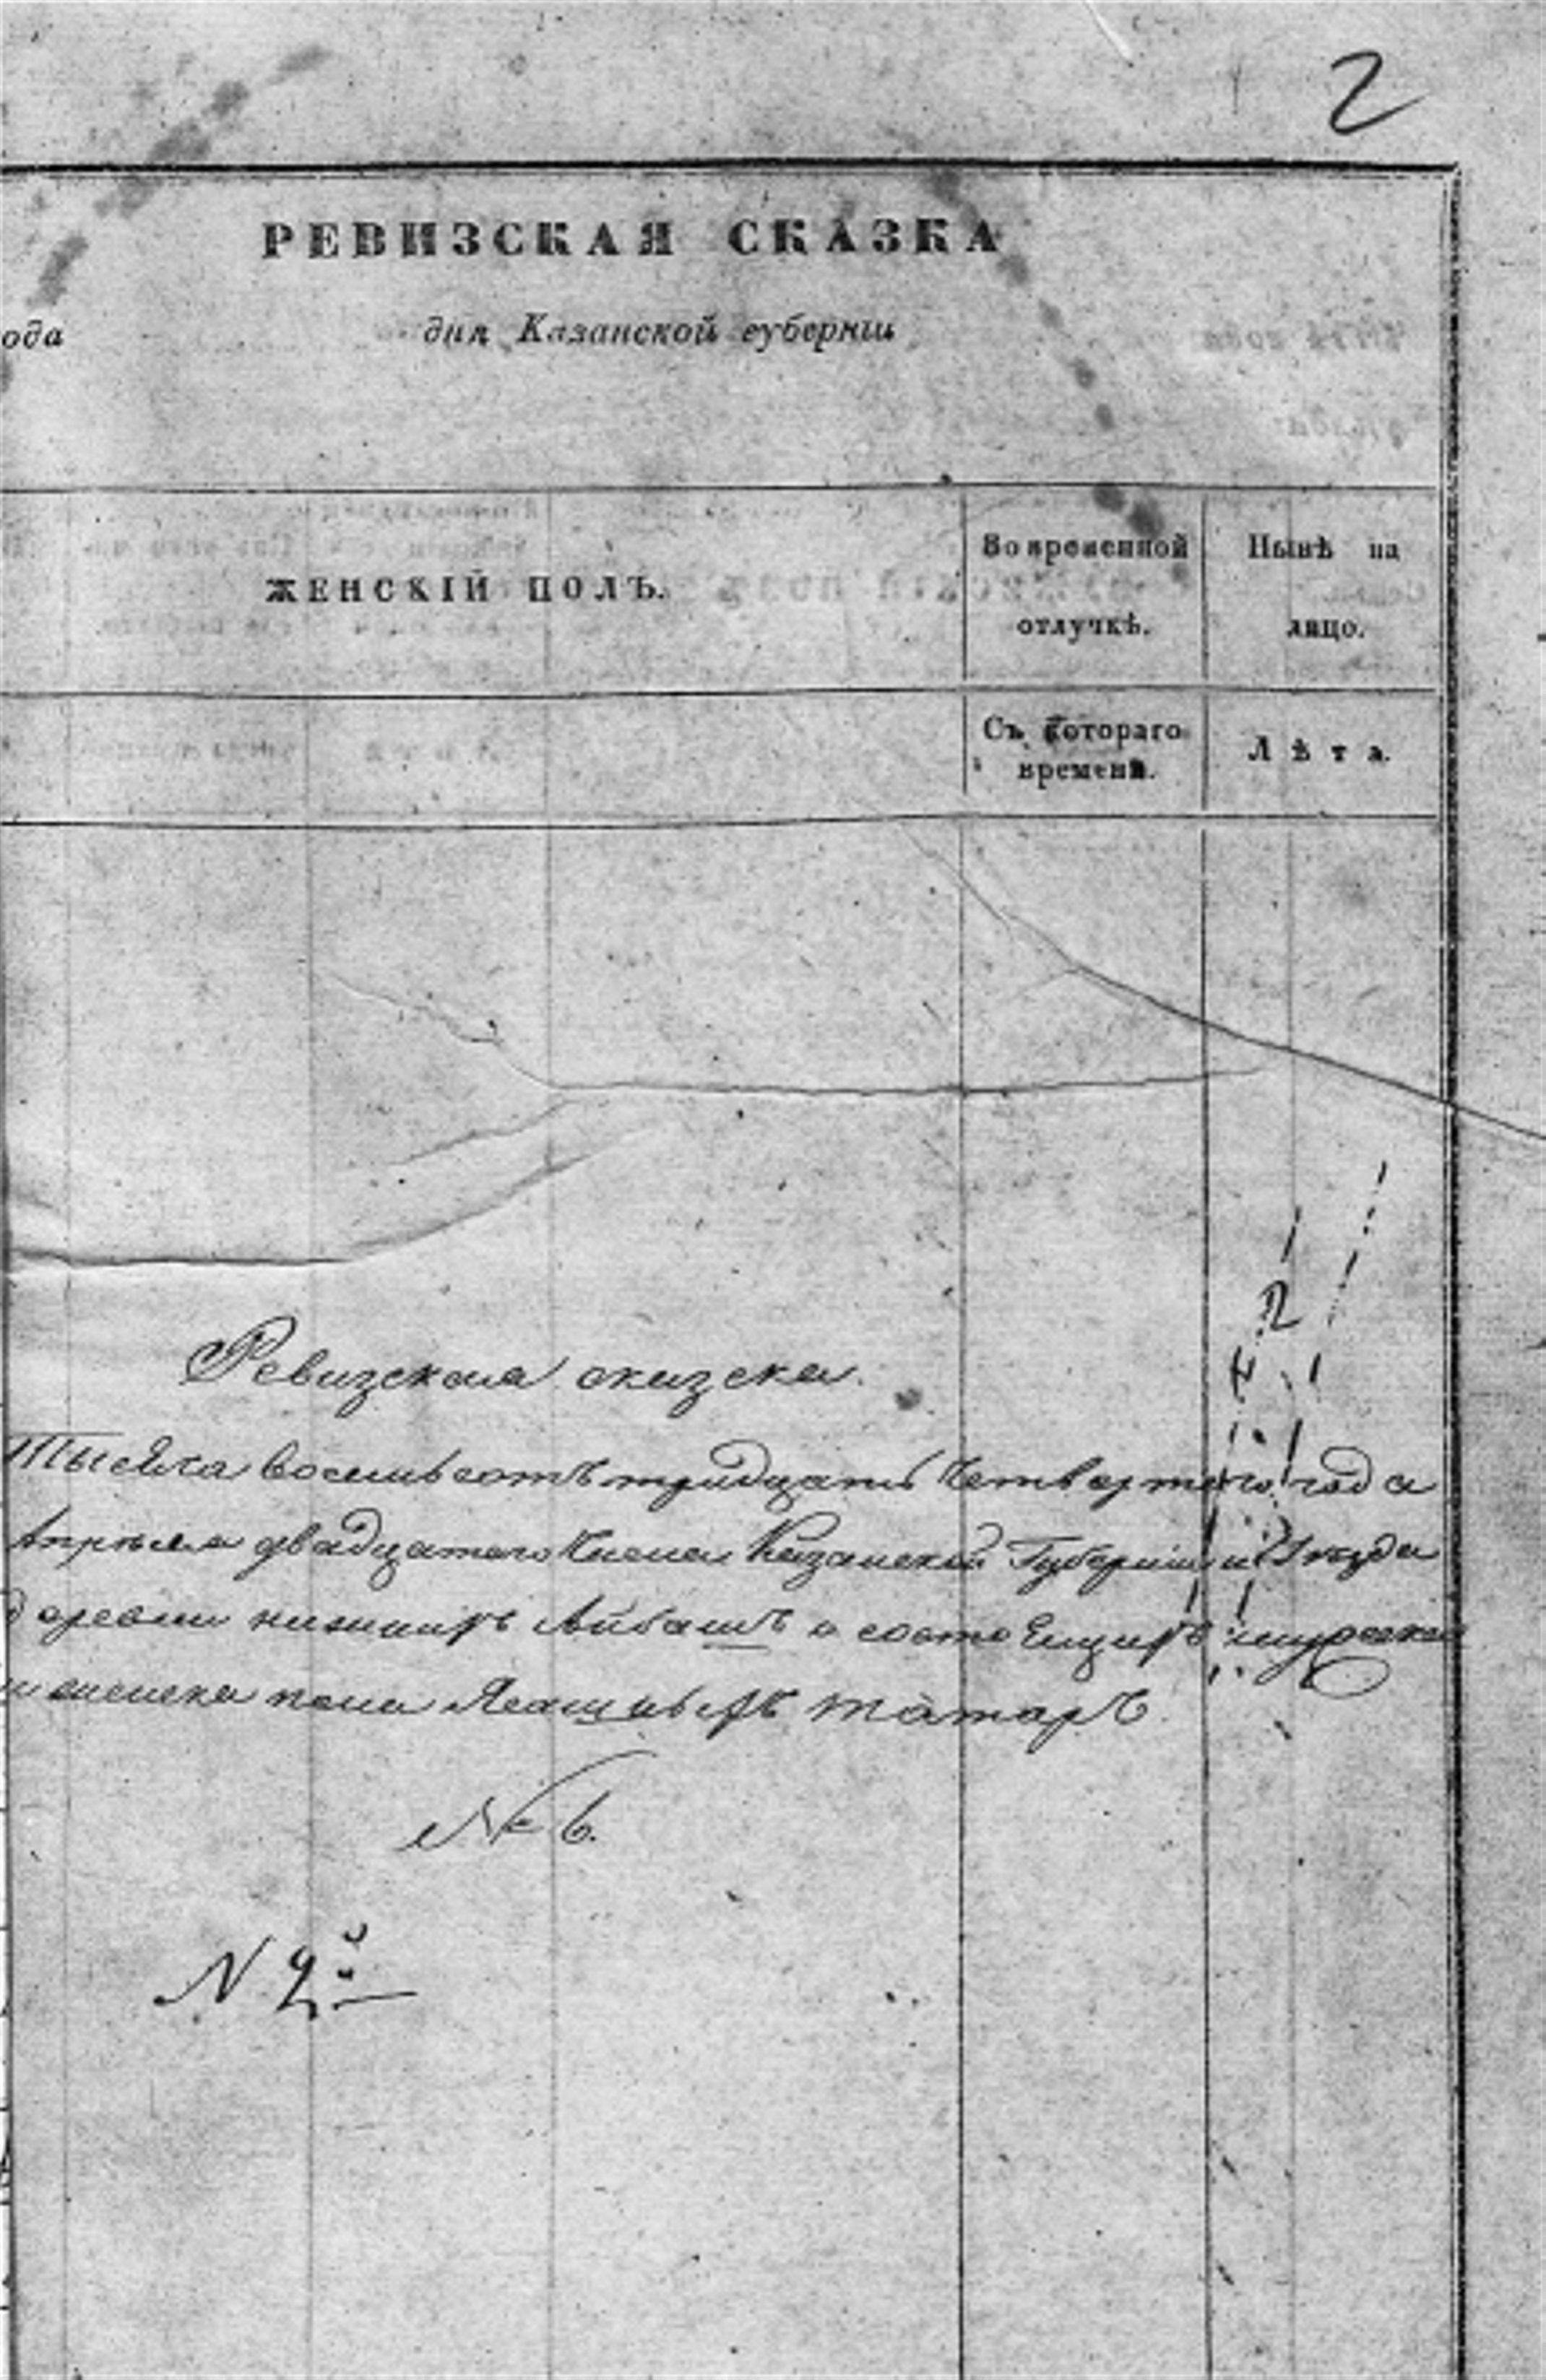 2
РЕВИЗСКАЯ СКАЗКА
ода
дня Казанской губерніи
ЖЕНСКІЙ ПОЛЪ.
Во временной отлучкѣ.
Нынѣ на лицо.
Съ котораго времени.
Лѣта.
Ревизская сказска
Тысяча восемьсотъ тридцать четвертого года
Апреля двадцатого числа Казанской Губерніи и Уезда
деревни нижнихъ Айбашъ о состоещихъ мужска
и женска пола Ясашныхъ татаръ
№ 6.
N 2й